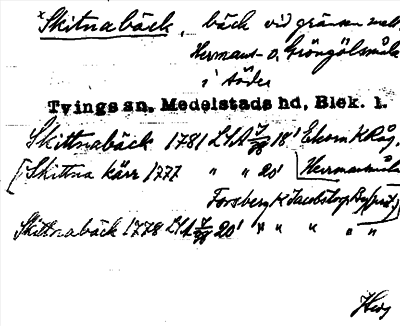 *Skitnabäck, bäck vid gränsen mell.
Hermans- o. Gröngölsmåla
i söder
Tvings sn, Medelstads hd, Blek. l.
Skittnabäck 1781 LSA 18' Ekorn K Råg.
[Skittna kärr 1777 " " 20' Hermanmåla
Forsberg K Jacobstorp
Skittnabäck 1778 LSA 20' " " " " "